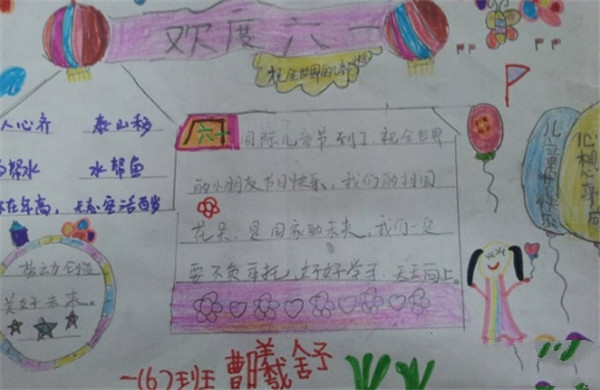 欢度六一
祝全世界的
人心齐 泰山移
水帮鱼
不在年高，无志空活百岁
劳动创造
美好未来。
六一国际儿童节到了，祝全世界
的小朋友节日快乐，我们的祖国
花朵，是国家的未来，我们一定
要不负重托，好好学习，天天向上。
儿童节快乐
心想事成
一(6)班 曹曦舒